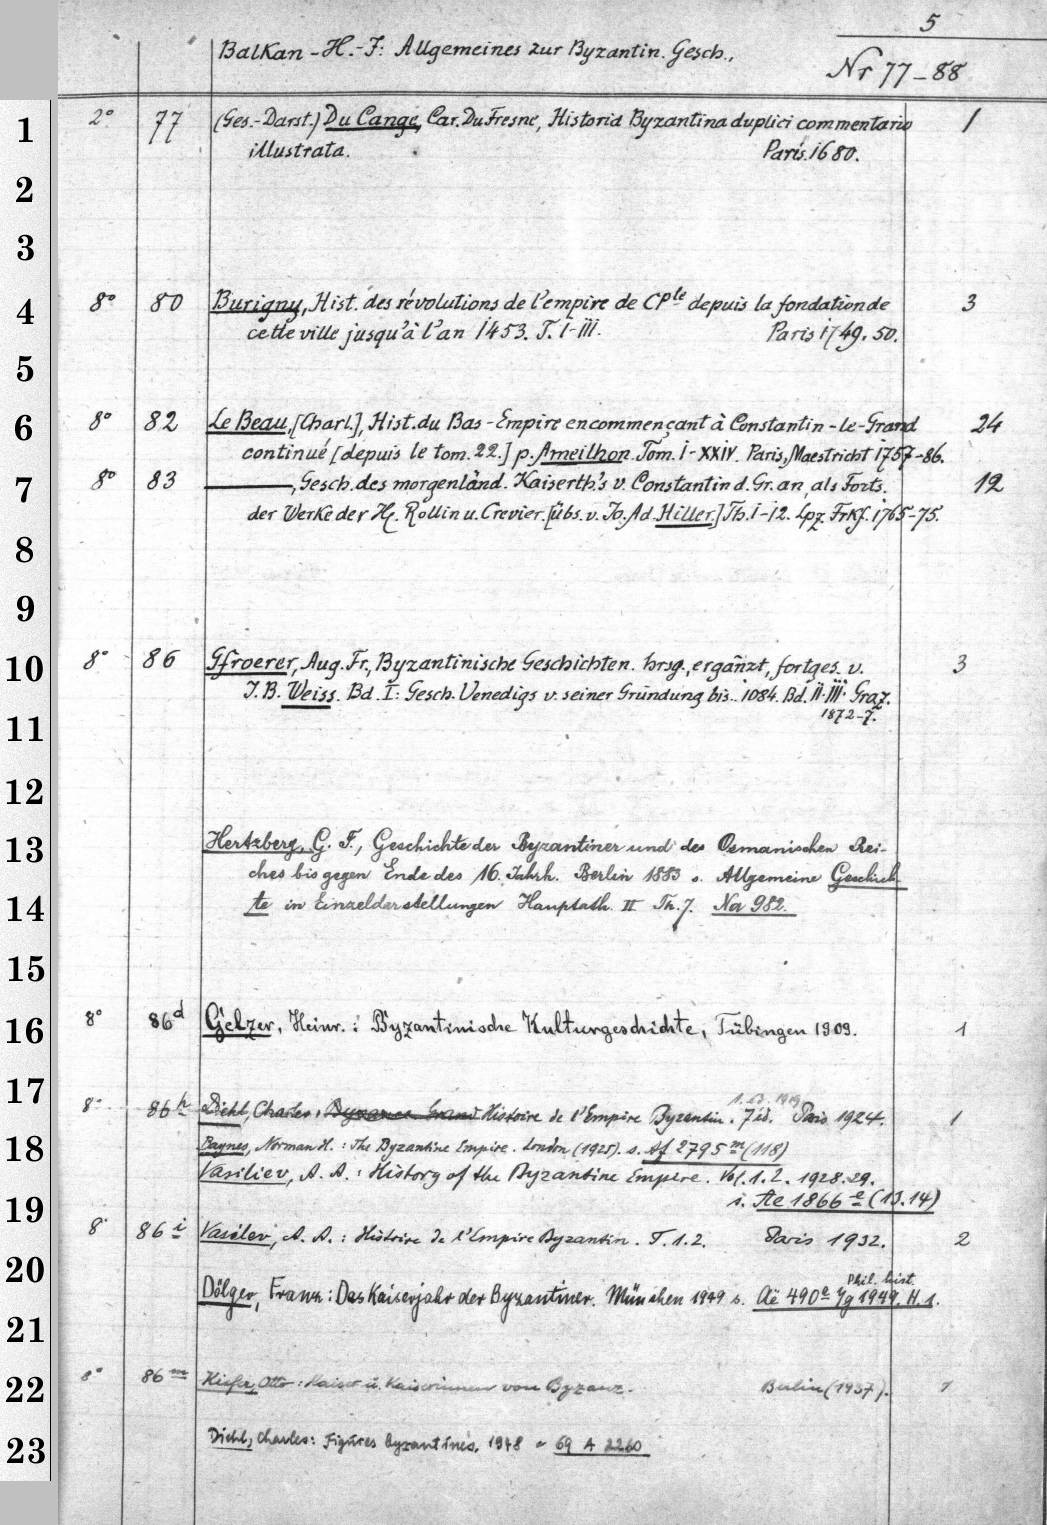 5
Balkan - H.-F: Allgemeines zur Byzantin. Gesch.,
Nr 77-88
1 2° 77 (Ges.-Darst.) Du Cange, Car. Du Fresne, Historia Byzantina duplici commentario 1
illustrata. Paris. 1680.
2
3
4 8° 80 Burigny, Hist. des révolutions de l'empire de Cple depuis la fondation de 3
cette ville jusqu'à l'an 1453. T. I-III. Paris 1749. 50.
5
6 8° 82 Le Beau, [Charl.], Hist. du Bas-Empire en commençant à Constantin-le-Grand 24
continué [depuis le tom. 22.] p. Ameilhon. Tom. I-XXIV. Paris, Maestricht 1757-86.
7 8° 83 ———, Gesch. des morgenländ. Kaiserth's v. Constantin d. Gr. an, als Forts. 12
der Werke der H. Rollin u. Crevier. [übs. v. Jo. Ad. Hiller.] Th. 1-12. Lpz. Frkf. 1765-75.
8
9
10 8° 86 Gfroerer, Aug. Fr., Byzantinische Geschichten. hrsg., ergänzt, fortges. v. 3
J. B. Weiss. Bd. I: Gesch. Venedigs v. seiner Gründung bis.. 1084. Bd. II. III. Graz.
1872-7.
11
12
13 Hertzberg, G. F., Geschichte der Byzantiner und des Osmanischen Rei-
ches bis gegen Ende des 16. Jahrh. Berlin 1883 s. Allgemeine Geschich-
14 te in Einzeldarstellungen Hauptabth. II Th. 7. No 982.
15
16 8° 86d Gelzer, Heinr.: Byzantinische Kulturgeschichte, Tübingen 1909. 1
17 1. 1919
8° 86h Diehl, Charles: Byzance Grand Histoire de l'Empire Byzantin. 7 éd. Paris 1924. 1
18 Baynes, Norman H.: The Byzantine Empire. London (1925). s. Af 2795m (118)
Vasiliev, A. A.: History of the Byzantine Empire. Vol. 1. 2. 1928. 29.
19 s. Ae 1866e (13.14)
8° 86i Vasilev, A. A.: Histoire de l'Empire Byzantin. T. 1. 2. Paris 1932. 2
20 Phil. hist.
Dölger, Franz: Das Kaiserjahr der Byzantiner. München 1949 s. Aë 490e Jg 1949. H. 1.
21
22 8° 86m Kiefer, Otto: Kaiser u. Kaiserinnen von Byzanz. Berlin (1937). 1
23 Diehl, Charles: Figures byzantines. 1948 = 69 A 2260